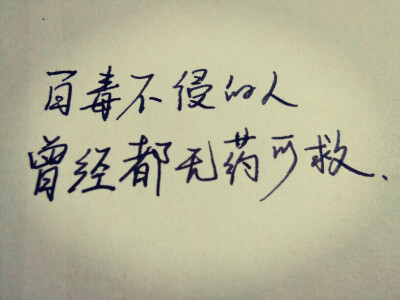 百毒不侵的人
曾经都无药可救.